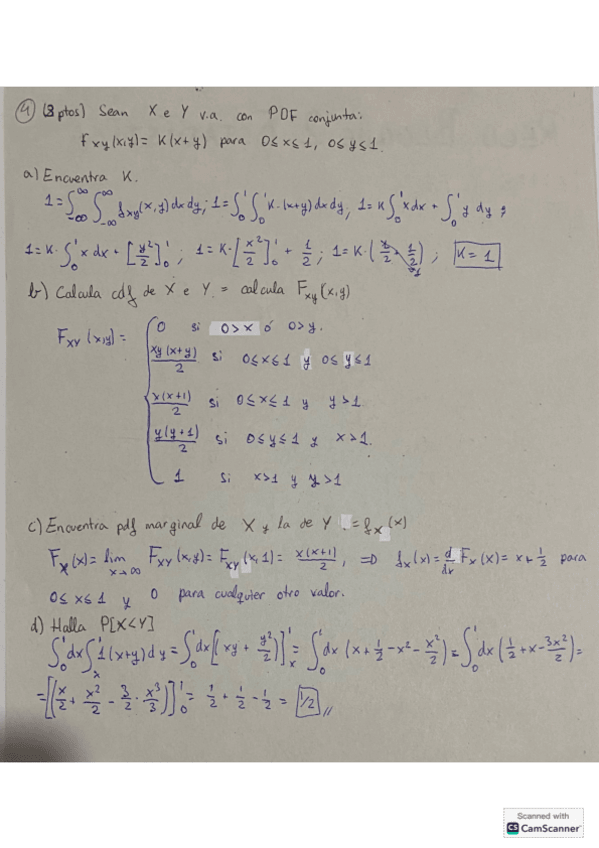 4) (3 ptos) Sean X e Y v.a. con PDF conjunta:
F_XY(x,y) = K(x+y) para 0≤x≤1, 0≤y≤1.
a) Encuentra K.
1=∫_{-∞}^{∞} ∫_{-∞}^{∞} f_xy(x,y) dx dy; 1=∫_0^1 ∫_0^1 K·(x+y) dx dy, 1=K∫_0^1 x dx + ∫_0^1 y dy;
1=K·∫_0^1 x dx + [y²/2]_0^1; 1=K·[x²/2]_0^1 + 1/2; 1=K·(1/2+1/2); K=1
b) Calcula cdf de X e Y = calcula F_xy(x,y)
F_XY(x,y) =
0 si 0>x ó 0>y.
xy(x+y)/2 si 0≤x≤1 y 0≤y≤1
x(x+1)/2 si 0≤x≤1 y y>1
y(y+1)/2 si 0≤y≤1 y x>1.
1 si x>1 y y>1
c) Encuentra pdf marginal de X y la de Y = f_X(x)
F_X(x) = lim_{x→∞} F_XY(x,y) = F_XY(x,1) = x(x+1)/2, ⇒ f_x(x) = d/dx F_X(x) = x+1/2 para
0≤x≤1 y 0 para cualquier otro valor.
d) Halla P[X<Y]
∫_0^1 dx ∫_x^1 (x+y) dy = ∫_0^1 dx [xy + y²/2]_x^1 = ∫_0^1 dx (x+1/2-x²-x²/2) = ∫_0^1 dx (1/2+x-3x²/2) =
= [(x/2 + x²/2 - 3/2·x³/3)]_0^1 = 1/2 + 1/2 - 1/2 = 1/2 //
Scanned with
CS CamScanner